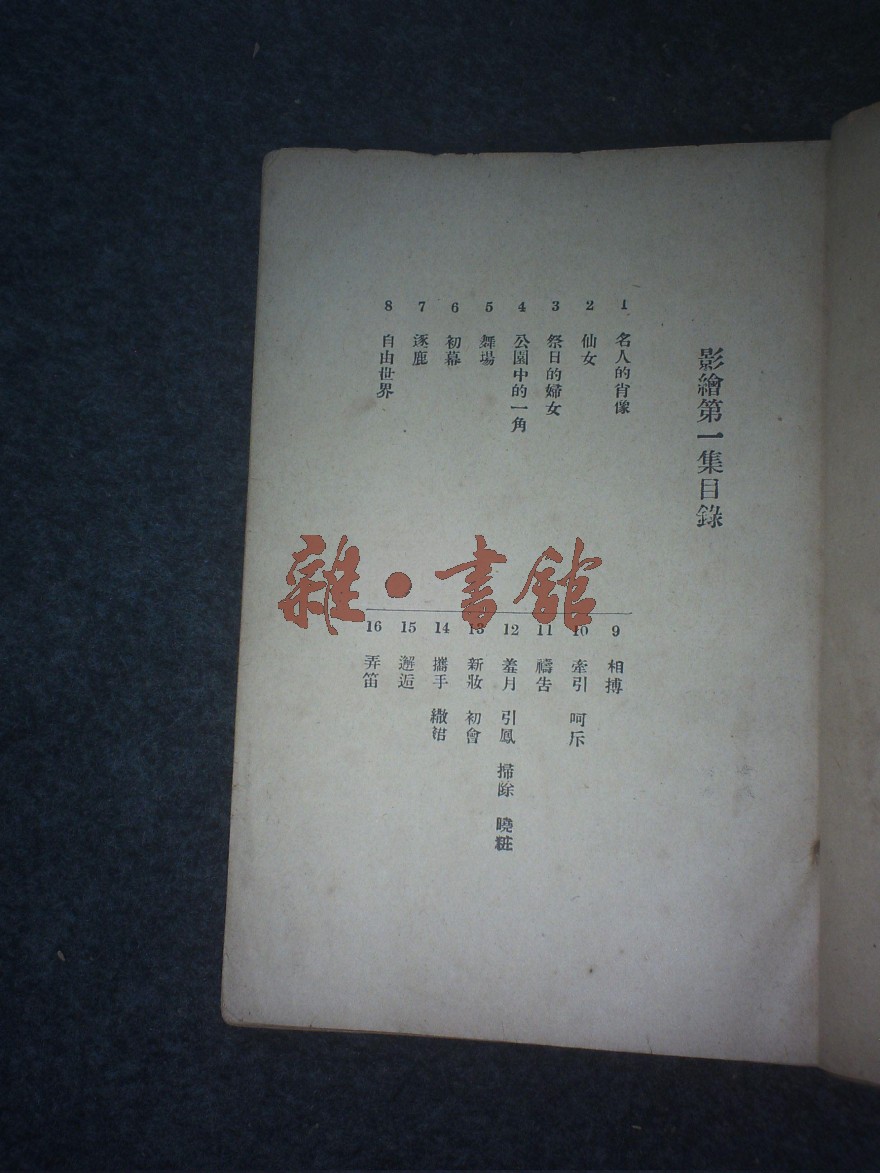 影繪第一集目錄
1 名人的肖像
2 仙女
3 祭日的婦女
4 公園中的一角
5 舞場
6 初幕
7 逐鹿
8 自由世界
9 相搏
10 牽引 呵斥
11 禱告
12 羞月 引鳳 掃除 曉粧
13 新妝 初會
14 攜手 繳
15 邂逅
16 弄笛
雜·書館